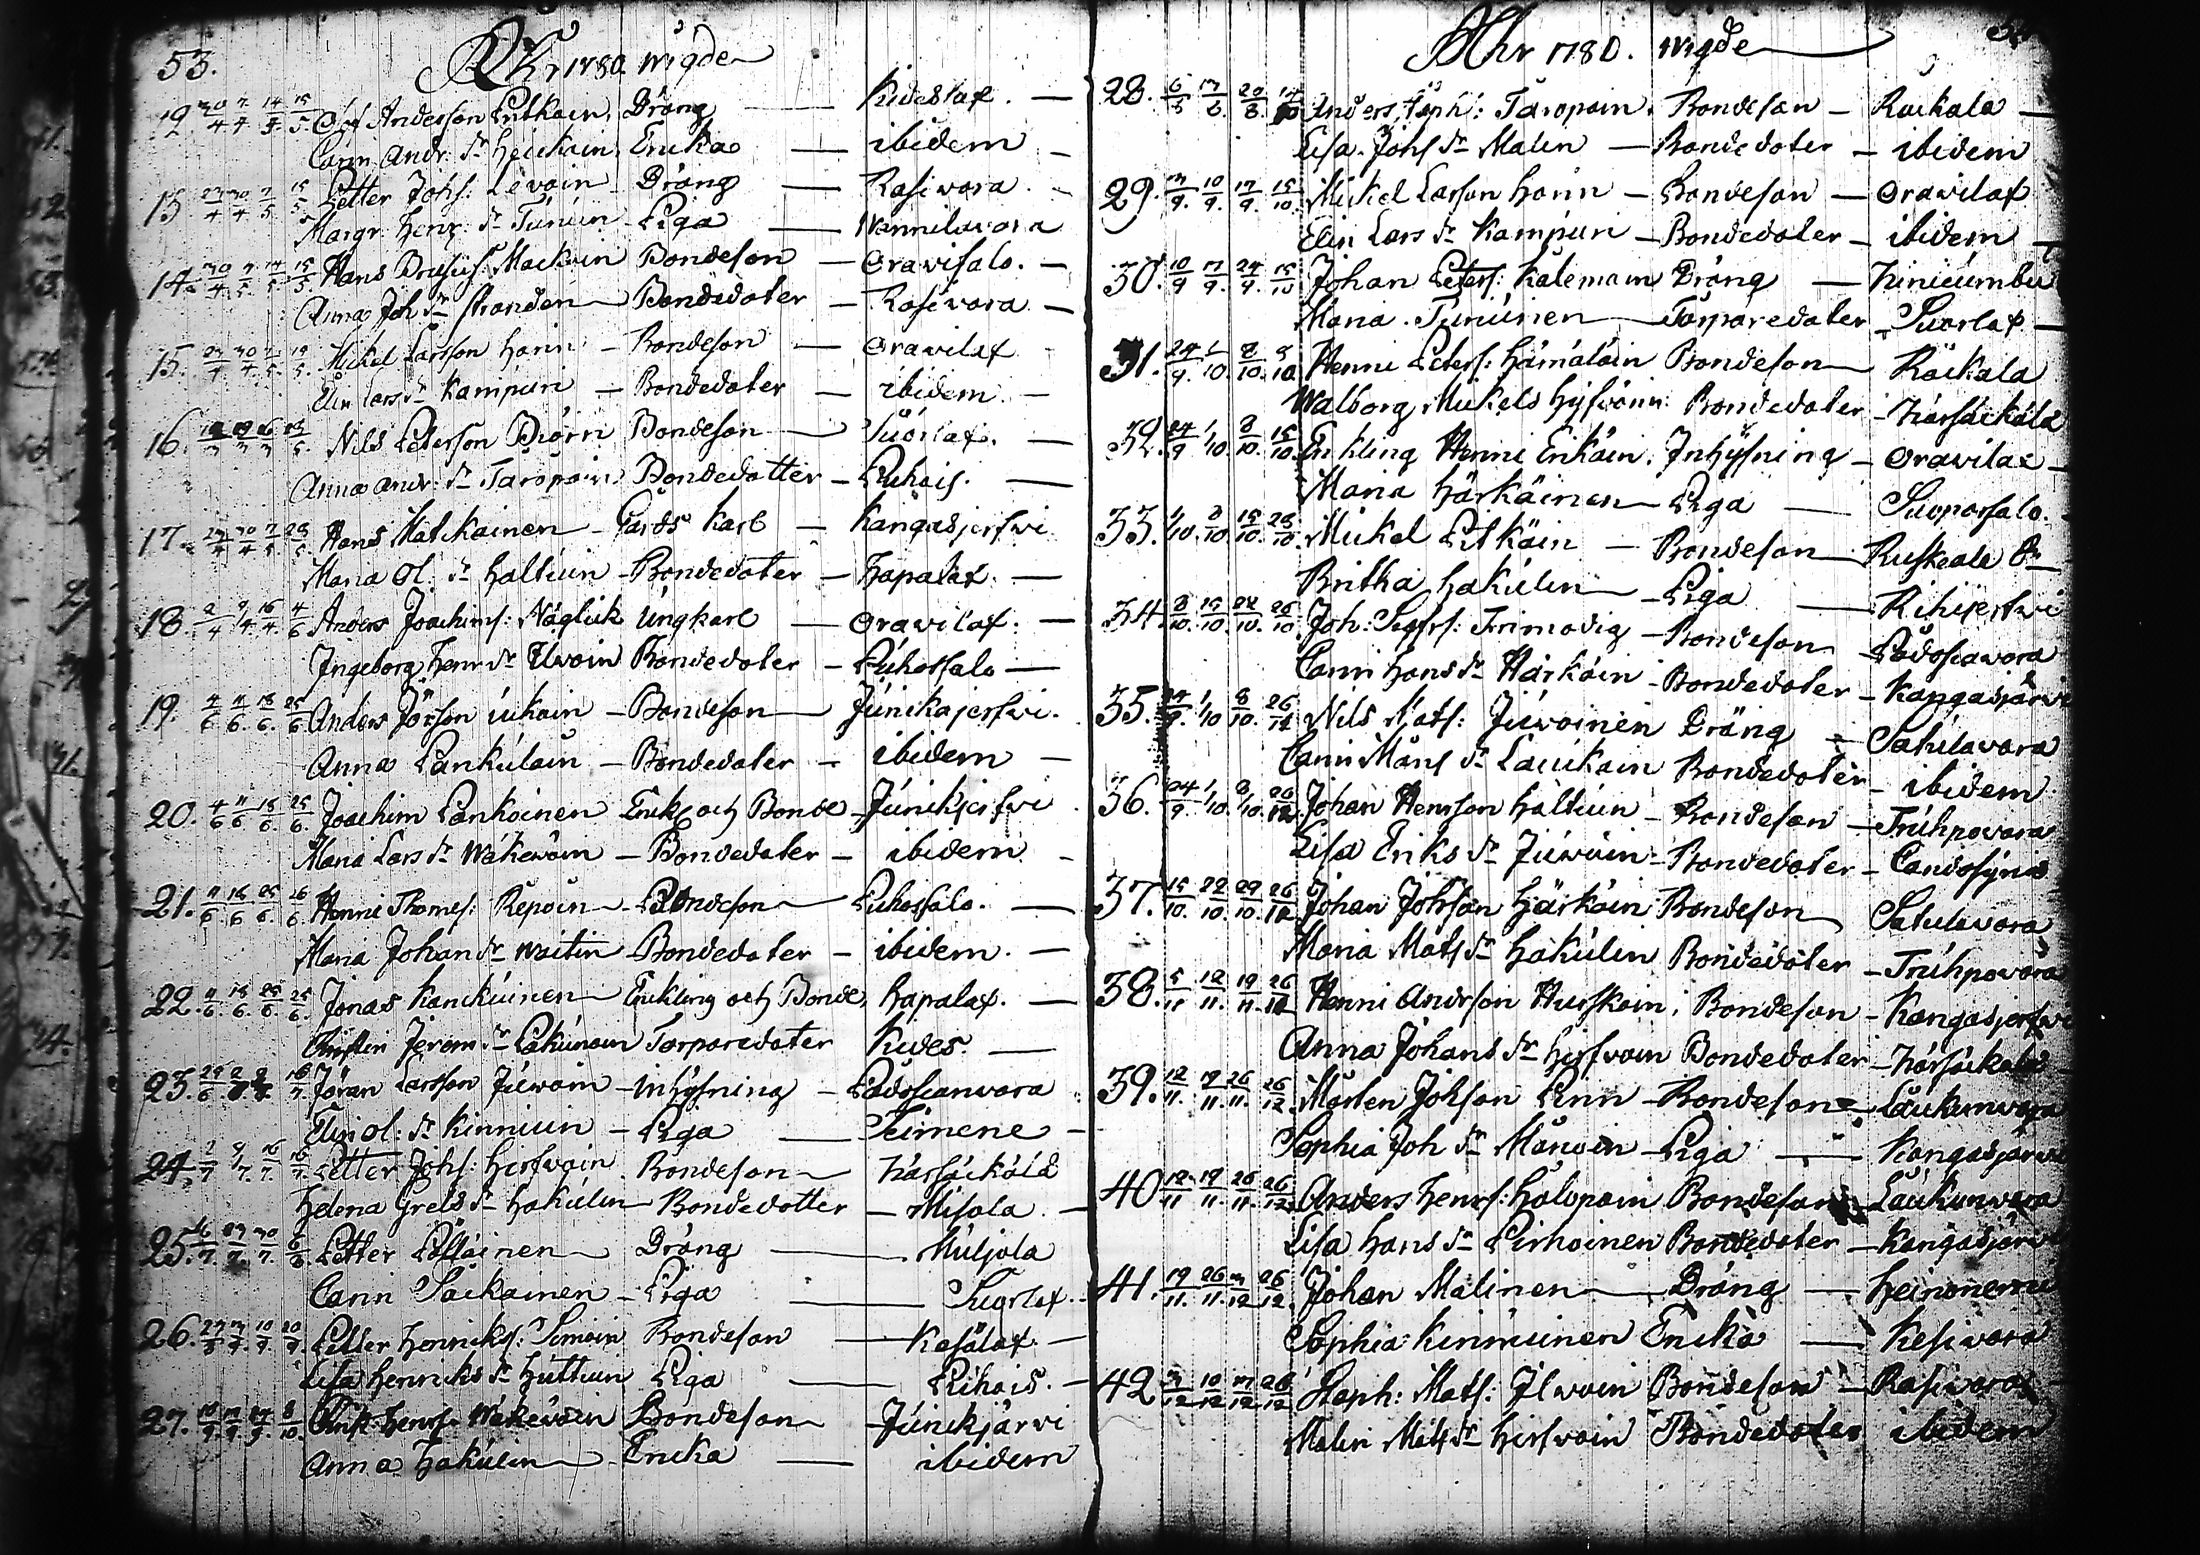 53. Åhr 1780 wigde
12. 30/4 7/4 14/5 15/5 Olof Andersson Litkoin Dräng — Kideslax. —
Carin Andr. Dr Heickoin Encka — ibidem —
13. 23/4 30/4 7/5 15/5 Petter Johs: Levoin Dräng — Rasivara. —
Margr. Henr. Dr Turuin Piga — Wannilavara
14. 30/4 7/5 14/5 15/5 Hans Brusius Mackoin Bondeson — Oravisalo. —
Anna Joh Dr Bondedoter — Rasivara. —
15. 23/4 30/4 7/5 15/5 Mickel Larsson Horin — Bondeson — Oravilax —
Elin Lars Dr Kampuri — Bondedoter — ibidem. —
16. Nils Peterson Biörn Bondeson — Suorlax. —
Anna Andr: Dr Taropoin Bondedotter — Puhois. —
17. 23/4 30/4 7/5 28/5 Hans Matikainen — Gårds Karl — Kangasjerfwi
Maria Ol: Dr Haltuin — Bondedoter — Hapalax. —
18. 2/4 9/4 16/4 4/6 Anders Joachims: Näglick Ungkarl — Oravilax. —
Ingeborg Henr Dr Ilwoin Bondedoter — Puhossalo —
19. 4/6 11/6 18/6 25/6 Anders Jörson Iukoin — Bondeson — Junikajerfwi.
Anna Pankulain — Bondedoter — ibidem —
20. 4/6 11/6 18/6 25/6 Joachim Pankoinen Enkl och Bonde — Junikjerfwi
Maria Lars Dr Wäkewäin — Bondedoter — ibidem —
21. 11/6 18/6 25/6 Henric Thomes: Repoin — Bondeson — Puhossalo. —
Maria Johan Dr Waitin Bondedoter — ibidem. —
22. 11/6 18/6 25/6 25/6 Jonas Kanckuinen — Enckling och Bonde, Hapalax. —
Christin Jerem: Dr Pakunain Torparedoter Kides. —
23. Jöran Larsson Juwoin — Inhysning — Podossanvara
Elin Ol: Dr Kinnuin — Piga — Teimene —
24. 2/7 9/7 16/7 16/7 Petter Johs: Hirfvoin Bondeson — Harfäckälä
Helena Grels Dr Hakulin Bondedotter — Misola. —
25. 16/7 23/7 30/7 6/8 Petter Pölläinen — Dräng — Muljola
Carin Säckainen — Piga — Suorlax. —
26. Petter Henricks: Simoin Bondeson — Kesälax. —
Lisa Henricks Dr Huttuin Piga — Pihois. —
27. Christ: Henrs: Wäkeväin Bondeson — Junickjärvi
Anna Hakulin — Encka — ibidem
Åhr 1780. wigde
28. Anders Steph: Taropoin Bondeson — Räickälä —
Lisa Johs Dr Malin — Bondedoter — ibidem
29. 3/9 10/9 17/9 15/10 Mickel Larson Horin — Bondeson — Oravilax
Elin Lars Dr Kampuri — Bondedoter — ibidem —
30. 10/9 17/9 24/9 15/10 Johan Peters: Kälemain Dräng — Hinicumbu
Maria Turuinen — Torparedoter — Suorlax —
31. 24/9 1/10 8/10 8/10 Henric Peters: Hämäläin Bondeson — Räickälä
Walborg Mickels Hyfvönin Bondedoter — Harfäckälä
32. 24/9 1/10 8/10 15/10 Enkling Henric Erikäin. Inhysning — Oravilax —
Maria Härkäinen — Piga — Suoparsalo.
33. 1/10 8/10 15/10 28/10 Mickel Pitkäin — Bondeson — Ruskeala
Britha Hakulin — Piga — Rihijerfwi
34. 8/10 15/10 22/10 26/10 Joh: Sigfrs: Frimodig — Bondeson — Podossavara
Carin Hans Dr Härkoin — Bondedoter — Kangasjärvi
35. 24/9 1/10 8/10 26/12 Nils Mats: Juwoinen Dräng — Satulavara
Carin Måns Dr Lauckain Bondedoter — ibidem
36. 24/9 1/10 8/10 26/12 Johan Henrson Haltuin — Bondeson — Truhpovara
Lisa Eriks Dr Juwoin — Bondedoter — Candosyria
37. 15/10 22/10 29/10 26/12 Johan Johsson Härkoin Bondeson — Satulavara
Maria Mats Dr Hakulin Bondedoter — Truhpovara
38. 5/11 12/11 19/11 26/12 Henric Andrson Hurskain. Bondeson — Kangasjerfwi
Anna Johans Dr Hirfvoin Bondedoter — Harfäckälä
39. 12/11 19/11 26/11 26/12 Mårten Johson Pinn — Bondeson — Laukunvara
Sophia Joh Dr Monoin — Piga — Kangasjärvi
40. 12/11 19/11 26/11 26/12 Anders Henrs: Holopain Bondeson — Laukunvara
Lisa Hans Dr Pirhoinen Bondedoter — Kangasjärvi
41. 19/11 26/11 3/12 26/12 Johan Malinen — Dräng — Heinoniemi
Sophia Kinnuinen Encka — Kesivara
42. 3/12 10/12 17/12 26/12 Steph: Mats: Ilwoin Bondeson — Rasivara
Malin Mats Dr Hirfvoin Bondedoter ibidem